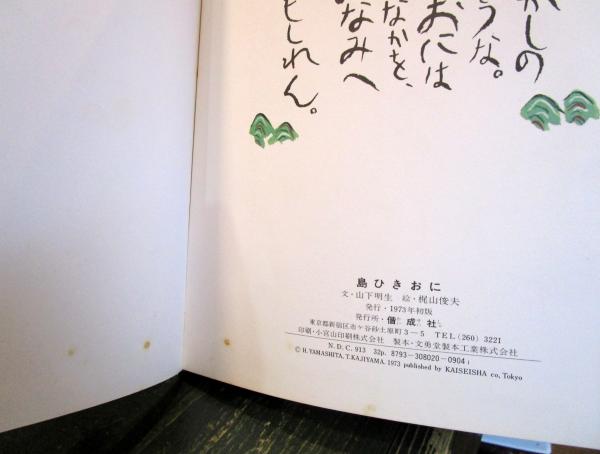 しの
うな。
おには
なかを、
なみへ
しれん。
島ひきおに
文・山下明生 絵・梶山俊夫
発行・1973年初版
発行所・偕成社
東京都新宿区市ケ谷砂土原町3－5 TEL(260) 3221
印刷・小宮山印刷株式会社 製本・文勇堂製本工業株式会社
N.D.C. 913 32p. 8793-308020-0904
© H. YAMASHITA, T. KAJIYAMA, 1973 published by KAISEISHA co, Tokyo